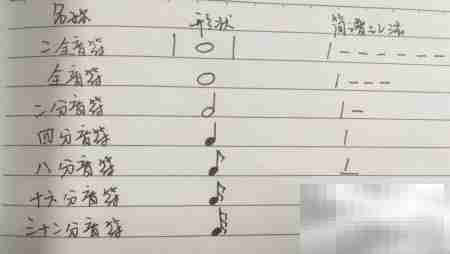 名称 形状 简谱记法
二全音符 |○| 1 - - - - - -
全音符 ○ 1 - - -
二分音符 𝅗𝅥 1 -
四分音符 ♩ 1
八分音符 ♪ 1
十六分音符 𝅘𝅥𝅯
三十二分音符 𝅘𝅥𝅰